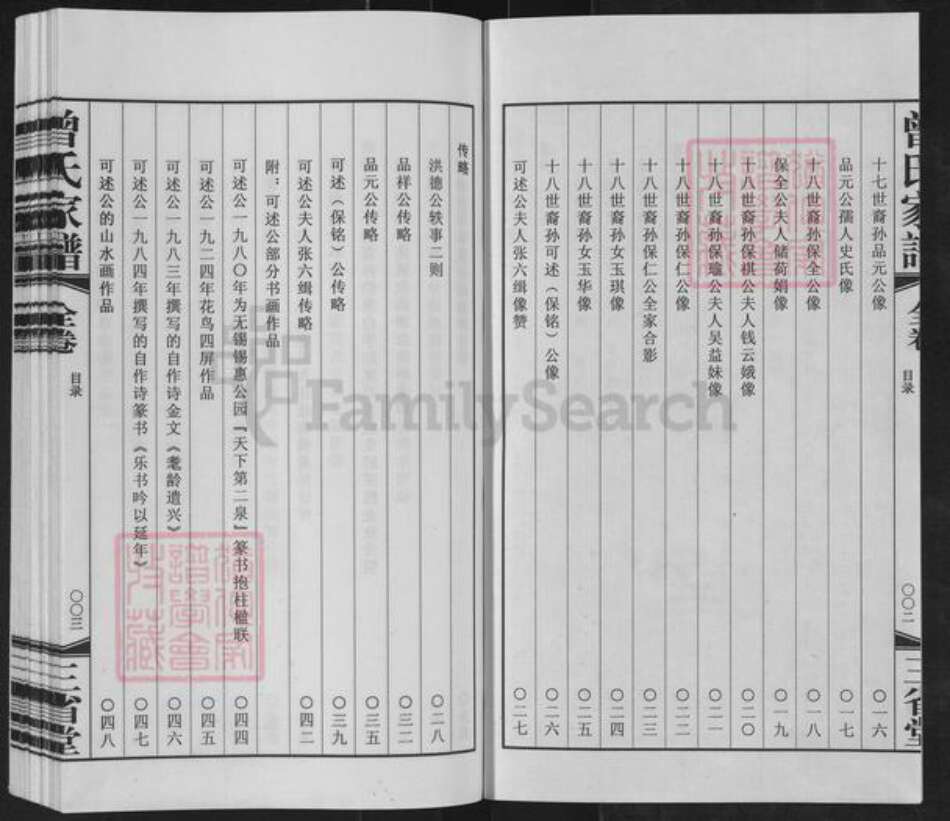 曾氏家谱
全卷
目录
〇〇二
三省堂
十七世裔孙品元公像 〇一六
品元公孺人史氏像 〇一七
十八世裔孙保全公像 〇一八
保全公夫人储荷娟像 〇一九
十八世裔孙保祺公夫人钱云娥像 〇二〇
十八世裔孙保瑜公夫人吴益妹像 〇二一
十八世裔孙保仁公像 〇二二
十八世裔孙保仁公全家合影 〇二三
十八世裔孙女玉琪像 〇二四
十八世裔孙女玉华像 〇二五
十八世裔孙可述（保铭）公像 〇二六
可述公夫人张六缉像赞 〇二七
传略
洪德公轶事二则 〇二八
品祥公传略 〇三二
品元公传略 〇三五
可述（保铭）公传略 〇三九
可述公夫人张六缉传略 〇四二
附：可述公部分书画作品
可述公一九八〇年为无锡锡惠公园『天下第二泉』篆书抱柱楹联 〇四四
可述公一九二四年花鸟四屏作品 〇四五
可述公一九八三年撰写的自作诗金文《耄龄遣兴》 〇四六
可述公一九八四年撰写的自作诗篆书《乐书吟以延年》 〇四七
可述公的山水画作品 〇四八
曾氏家谱
全卷
目录
〇〇三
三省堂
FamilySearch